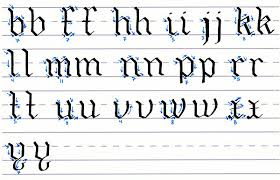 bb ff hh ii jj kk
ll mm nn pp rr
tt uu vv ww xx
yy